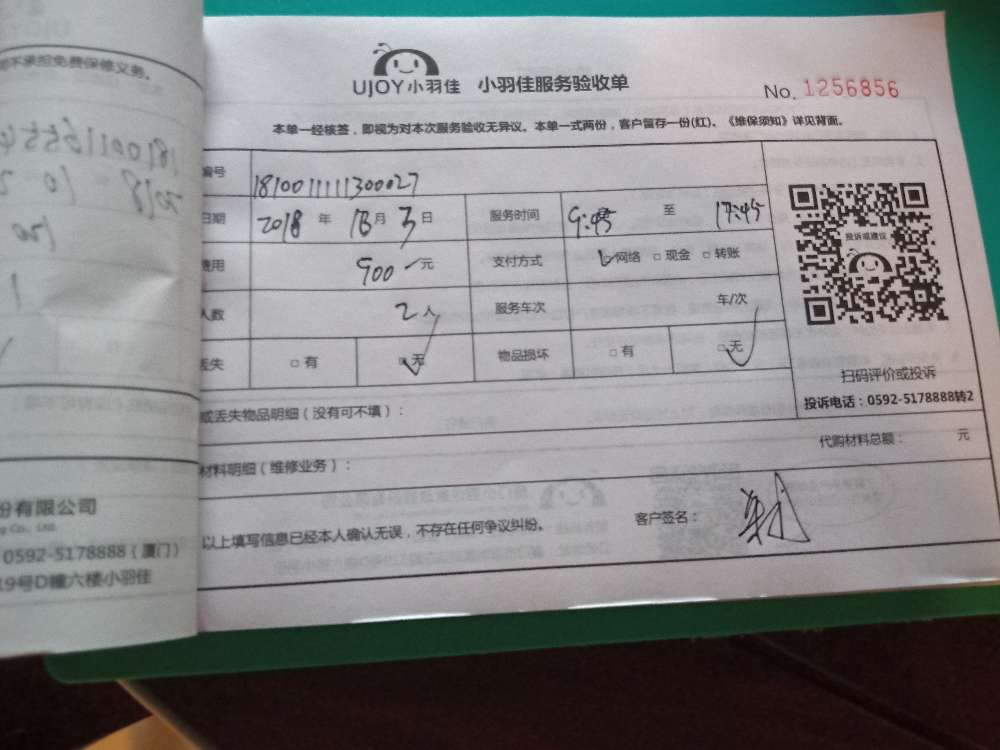 UJOY小羽佳 小羽佳服务验收单
No. 1256856
本单一经核签，即视为对本次服务验收无异议。本单一式两份，客户留存一份(红)。《维保须知》详见背面。
编号 1810011111300027
日期 2018 年 月 3 日 服务时间 9:45 至 17:45
费用 900 元 支付方式 网络 □ 现金 □ 转账
人数 2 人 服务车次 车/次
丢失 □ 有 □ 无 物品损坏 □ 有 □ 无
投诉或建议
扫码评价或投诉
投诉电话：0592-5178888转2
或丢失物品明细（没有可不填）：
代购材料总额： 元
材料明细（维修业务）：
以上填写信息已经本人确认无误，不存在任何争议纠纷。 客户签名：
不承担免费保修义务。
份有限公司
Co., Ltd.
0592-5178888（厦门）
19号D幢六楼小羽佳